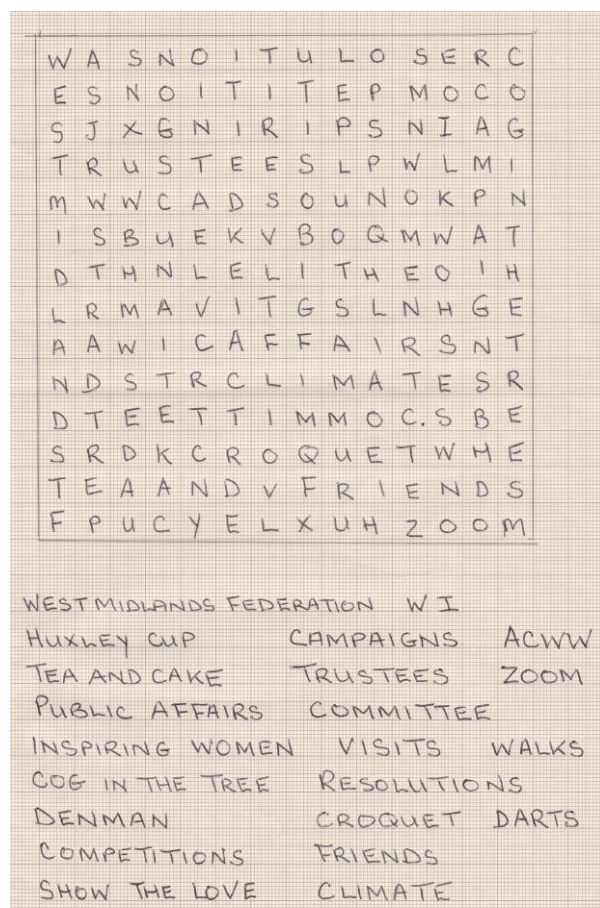 W A S N O I T U L O S E R C
E S N O I T I T E P M O C O
S J X G N I R I P S N I A G
T R U S T E E S L P W L M I
M W W C A D S O U N O K P N
I S B U E K V B O Q M W A T
D T H N L E L I T H E O I H
L R M A V I T G S L N H G E
A A W I C A F F A I R S N T
N D S T R C L I M A T E S R
D T E E T T I M M O C . S B E
S R D K C R O Q U E T W H E
T E A A N D V F R I E N D S
F P U C Y E L X U H Z O O M
WEST MIDLANDS FEDERATION W I
HUXLEY CUP CAMPAIGNS ACWW
TEA AND CAKE TRUSTEES ZOOM
PUBLIC AFFAIRS COMMITTEE
INSPIRING WOMEN VISITS WALKS
COG IN THE TREE RESOLUTIONS
DENMAN CROQUET DARTS
COMPETITIONS FRIENDS
SHOW THE LOVE CLIMATE